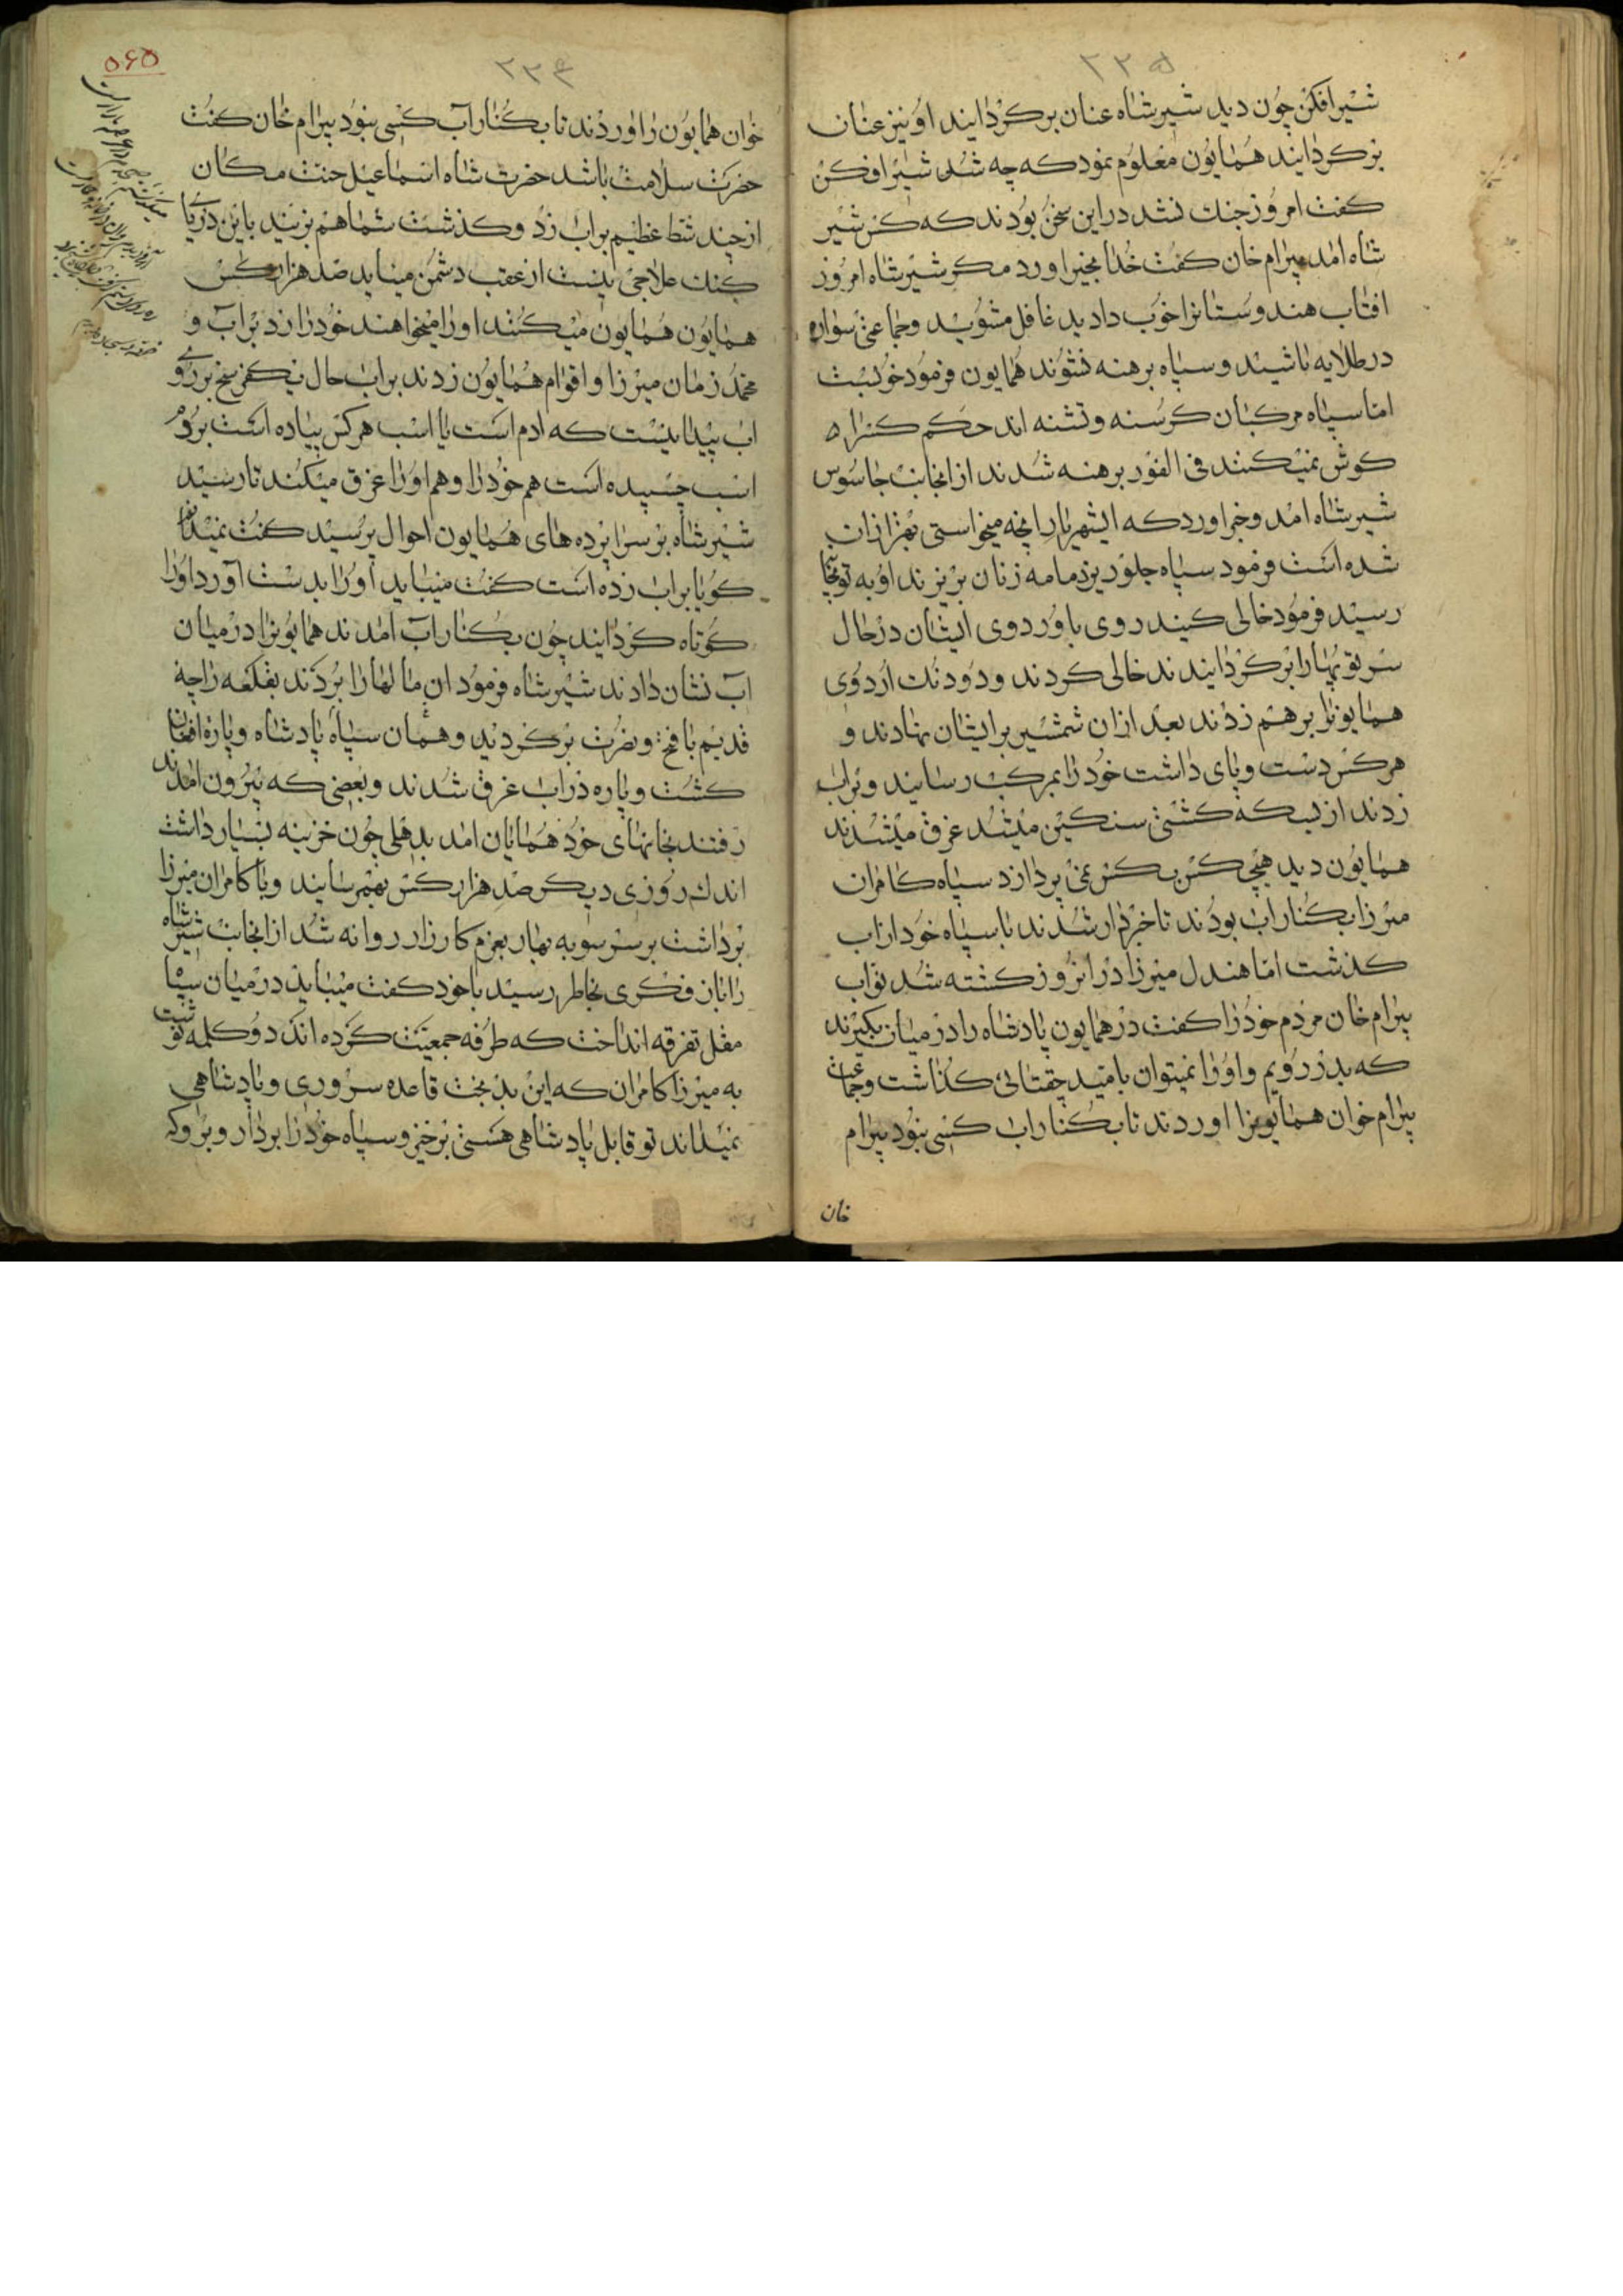 ۲۳۵
شیر افکن چون دید شیر شاه عنان برکردانید او نیز عنان
برکردانید همایون معلوم نمود که چه شد شیر افکن
کفت امروز جنك نشد در این سخن بودند که کس شیر
شاه امد بیرام خان کفت خدا بخیر اورد مکر شیر شاه امروز
افتاب هندوستانرا خوب دادید غافل مشوید و جماعتی سواره
در طلایه باشید و سپاه برهنه نشوند همایون فرمود خوبست
اما سپاه مرکبان کرسنه و تشنه اند حکم کسرا
کوش نمیکنند فی الفور برهنه شدند از انجانب جاسوس
شیر شاه امد و خبر اورد که ایشهریار انچه میخواستی بهتر از ان
شده است فرمود سپاه جلوریز دمامه زنان بریزند او به توبخا
رسید فرمود خالی کنید روی باوردوی ایشان در حال
سر توپها را برکردانیدند خالی کردند و دود نك اردوی
همایونرا برهم زدند بعد از ان شمشیر بر ایشان نهادند و
هر کس دست و پای داشت خود را بمرکب رسانید و بر اب
زدند از بس که کشتی سنکین میشد غرق میشدند
همایون دید هیچ کس بکس نمی پردازد سپاه کامران
میرزا بکنار اب بودند تا خبردار شدند با سپاه خود از اب
کذشت اما هندل میرزا در انروز کشته شد نواب
بیرام خان مردم خود را کفت در همایون پادشاه را در میان بکیرند
که بدر رویم و اورا نمیتوان بامید چقتائی کذاشت و جماعت
بیرام خوان همایونرا اوردند تا بکنار اب کسی نبود بیرام
خان
۲۳۴
۵۶۵
خوان همایون را اوردند تا بکنار آب کسی نبود بیرام خان کفت
حضرت سلامت باشد حضرت شاه اسماعیل جنت مکان
از چند شط عظیم بر اب زد و کذشت شما هم بزنید باین دریا
کنك علاجی نیست از عقب دشمن میاید صد هزار کس
همایون همایون میکنند اورا میخواهند خود را زد بر آب و
محمد زمان میرزا و اقوام همایون زدند بر اب حال یکفرسخ بر روی
اب پیدا نیست که ادم است یا اسب هر کس پیاده است بردم
اسب چسپیده است هم خود را و هم اورا غرق میکند تا رسید
شیر شاه بر سرا پرده های همایون احوال پرسید کفت نمیدانم
کویا بر اب زده است کفت میباید اورا بدست آورد اورا
کوتاه کردانید چون بکنار آب امدند همایونرا در میان
آب نشان دادند شیر شاه فرمود ان مالها را بردند بقلعه راجۀ
قدیم با فتح و نصرت برکردید و همان سپاه پادشاه و پارۀ افغان
کشت و پاره در اب غرق شدند و بعضی که بیرون امدند
رفتند بخانهای خود همایان امد بدهلی چون خزینه بسیار داشت
اندك روزی دیکر صد هزار کس بهمرسانید و با کامران میرزا
برداشت بر سر سو به بهار بعزم کارزار روانه شد از انجانب شیر شاه
را باز فکری بخاطر رسید با خود کفت میباید در میان سپاه
مقل تفرقه انداخت که طرفه جمعیت کرده اند دو کلمه نوشت
به میرزا کامران که این بدبخت قاعده سروری و پادشاهی
نمیداند تو قابل پادشاهی هستی برخیز و سپاه خود را بردار و برو که